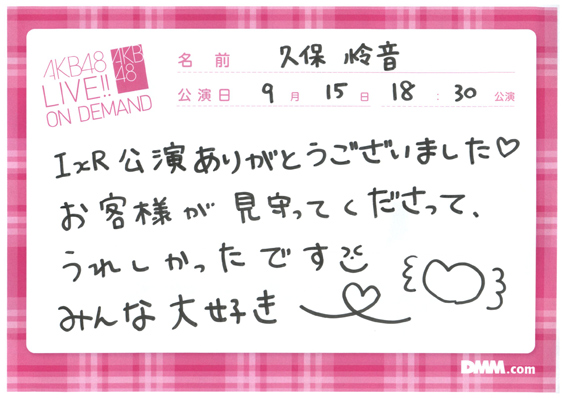 AKB48
LIVE!!
ON DEMAND
AKB
48
名前 久保怜音
公演日 9月15日 18:30公演
IxR公演ありがとうございました♡
お客様が見守ってくださって、
うれしかったです
みんな大好き
DMM.com